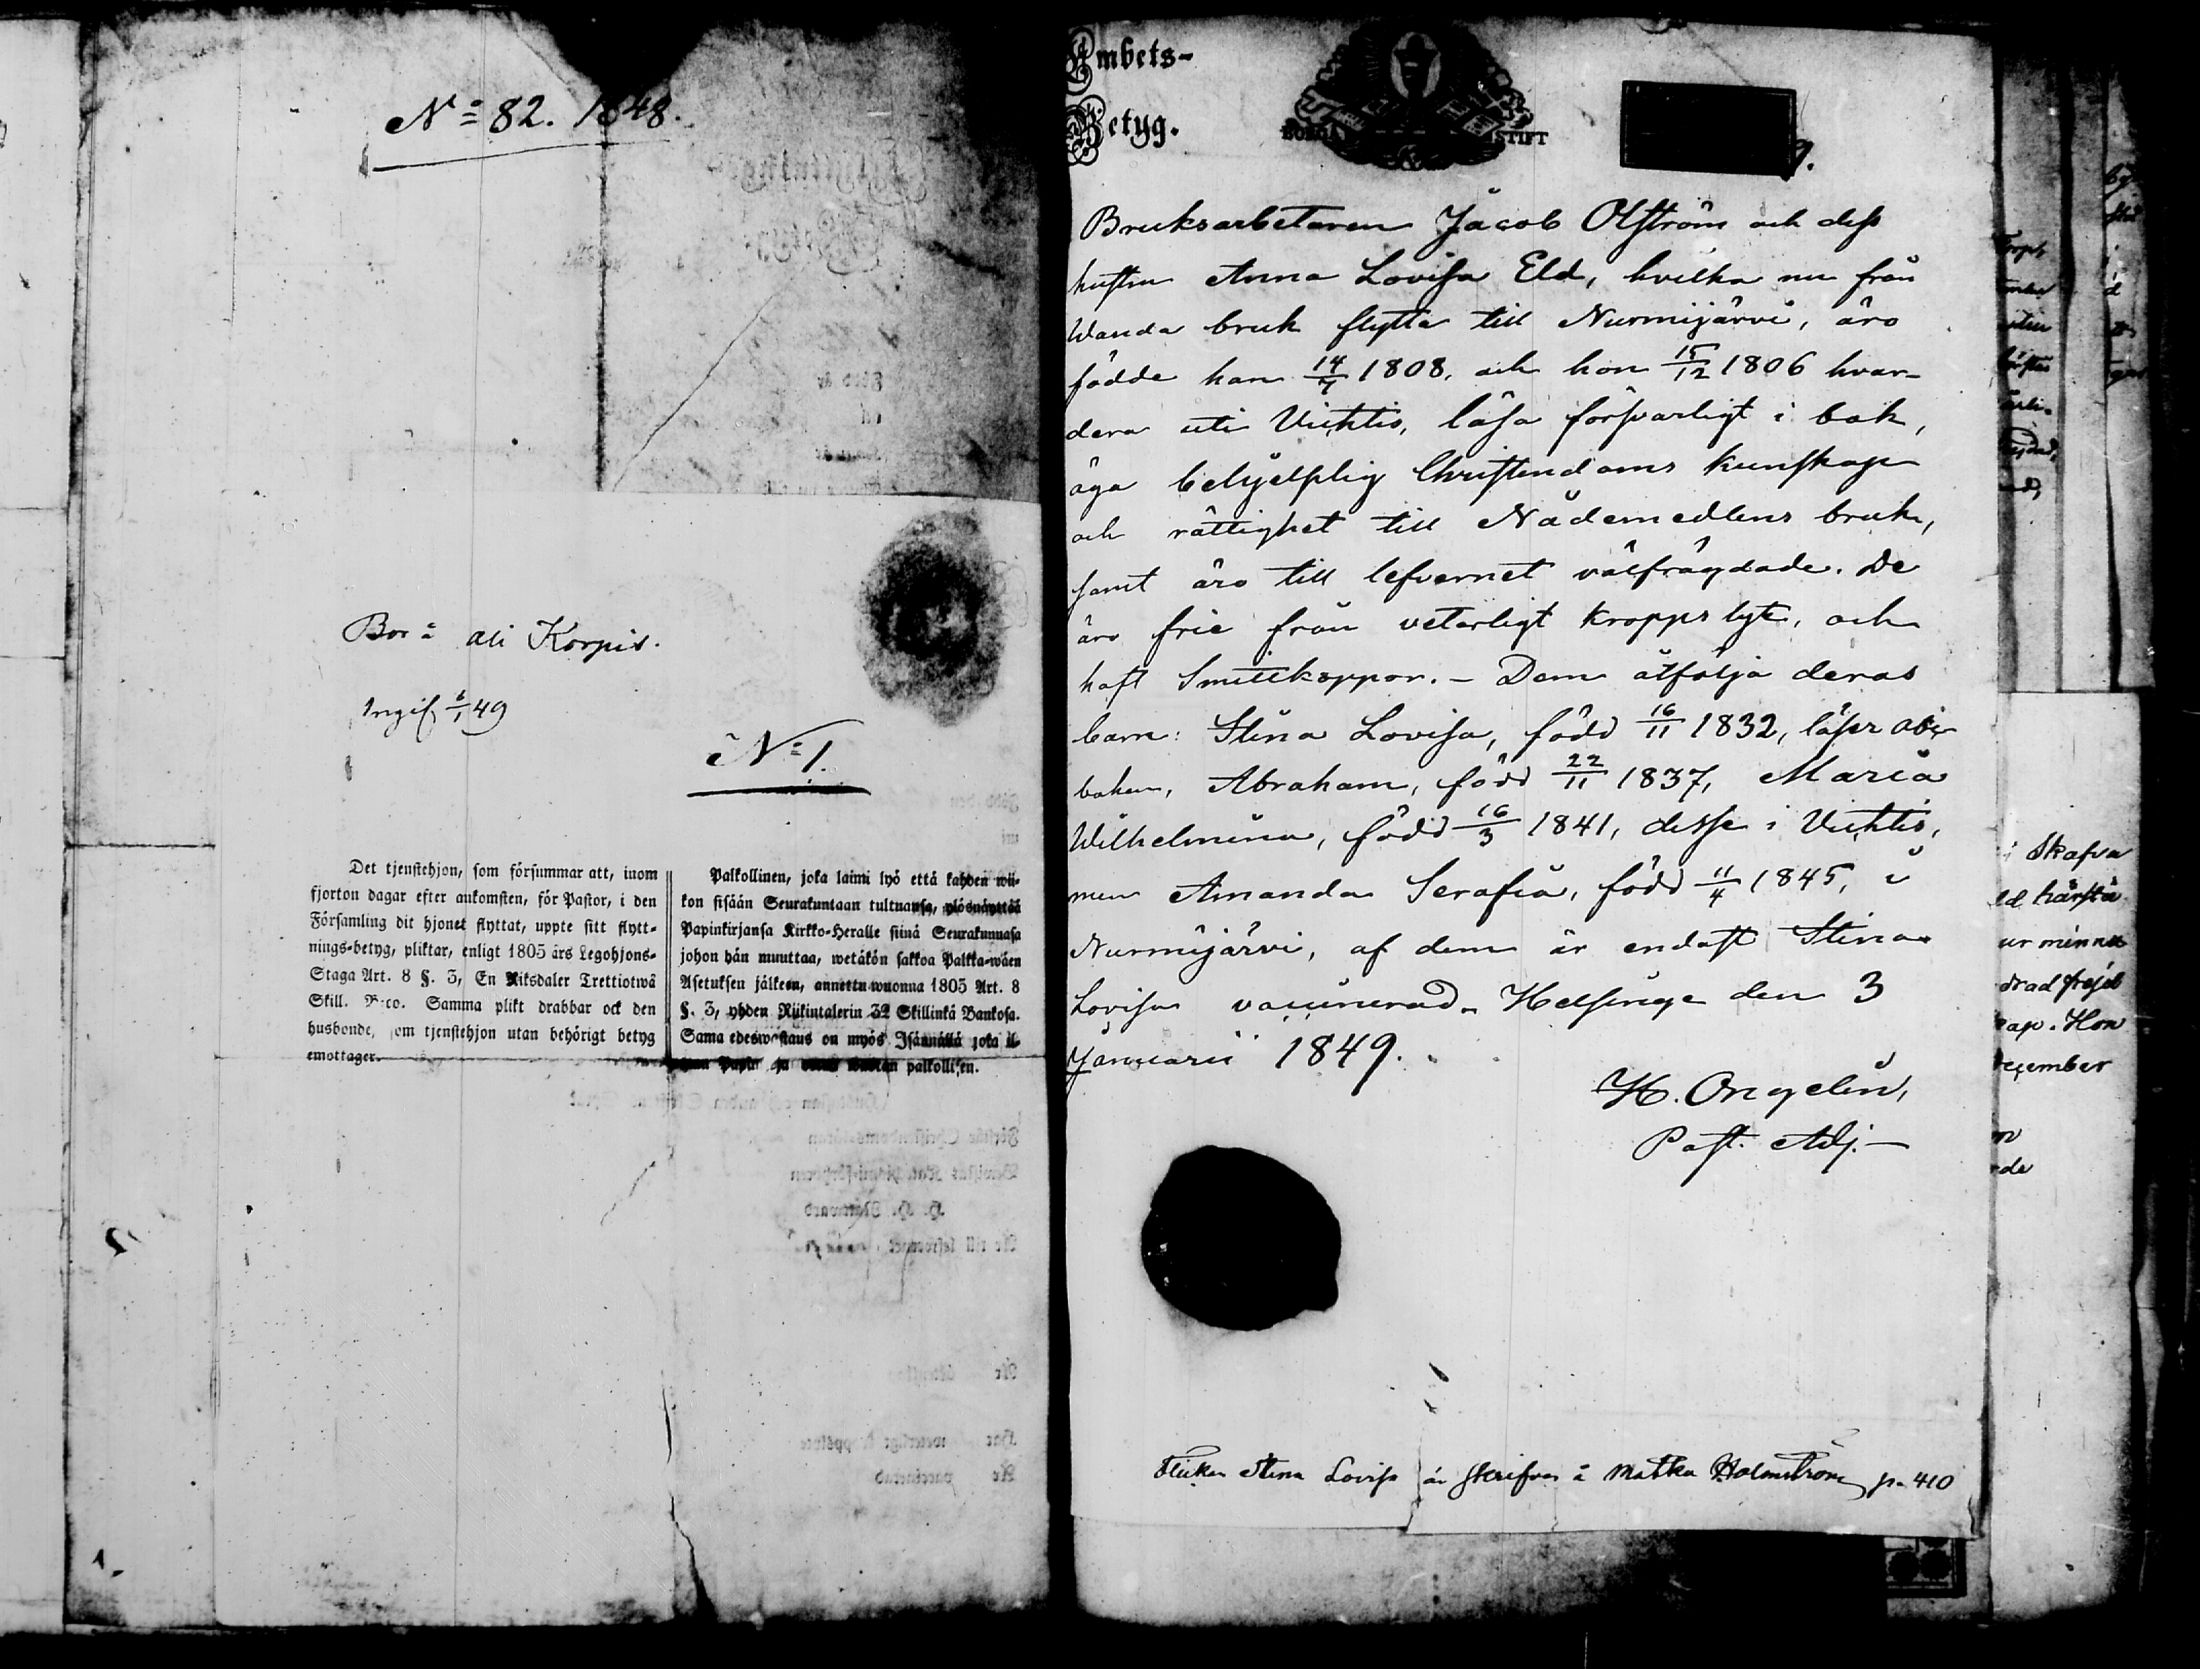 No 82. 1848.
Bor å ali Korpis.
Ingif 6/1 49
No 1.
Det tjenstehjon, som försummar att, inom
fjorton dagar efter ankomsten, för Pastor, i den
Församling dit hjonet flyttat, uppte sitt flytt-
nings-betyg, pliktar, enligt 1805 års Legohjons-
Staga Art. 8 §. 3, En Riksdaler Trettiotwå
Skill. B:co. Samma plikt drabbar ock den
husbonde, som tjenstehjon utan behörigt betyg
emottager.
Palkollinen, joka laimi lyö että kahden wii-
kon sisään Seurakuntaan tultuansa, ylösnäyttää
Papinkirjansa Kirkko-Heralle siinä Seurakunnasa
johon hän muuttaa, wetäkön sakkoa Palkka-wäen
Asetuksen jälkeen, annettu wuonna 1805 Art. 8
§. 3, yhden Riikintalerin 32 Skillinkä Bankosa.
Sama edeswastaus on myös Isännällä joka il-
palkollisen.
Embets-
Betyg.
STIFT
9.
Bruksarbetaren Jacob Olström och dess
hustru Anna Lovisa Eld, hvilka nu från
Wanda bruk flytta till Nurmijärvi, äro
födde han 14/7 1808, och hon 15/12 1806 hvar-
dera uti Vichtis, läsa försvarligt i bok,
äga behjelplig Christendoms kunskap
och rättighet till Nådemedlens bruk,
samt äro till lefvernet välfrägdade. De
äro frie från veterligt kroppslyte, och
haft Smittkoppor. - Dem åtfölja deras
barn: Stina Lovisa, född 16/11 1832, läser abc-
boken, Abraham, född 22/11 1837, Maria
Wilhelmina, född 16/3 1841, desse i Vichtis,
men Amanda Serafia, född 11/4 1845, i
Nurmijärvi, af dem är endast Stina
Lovisa vaccinerad. Helsinge den 3
Januarii 1849.
H. Ongelin,
Past. Adj.
Flickan Stina Lovisa är skrifven å Matku Holmström p. 410
Skafva
ur minne
Hon
December